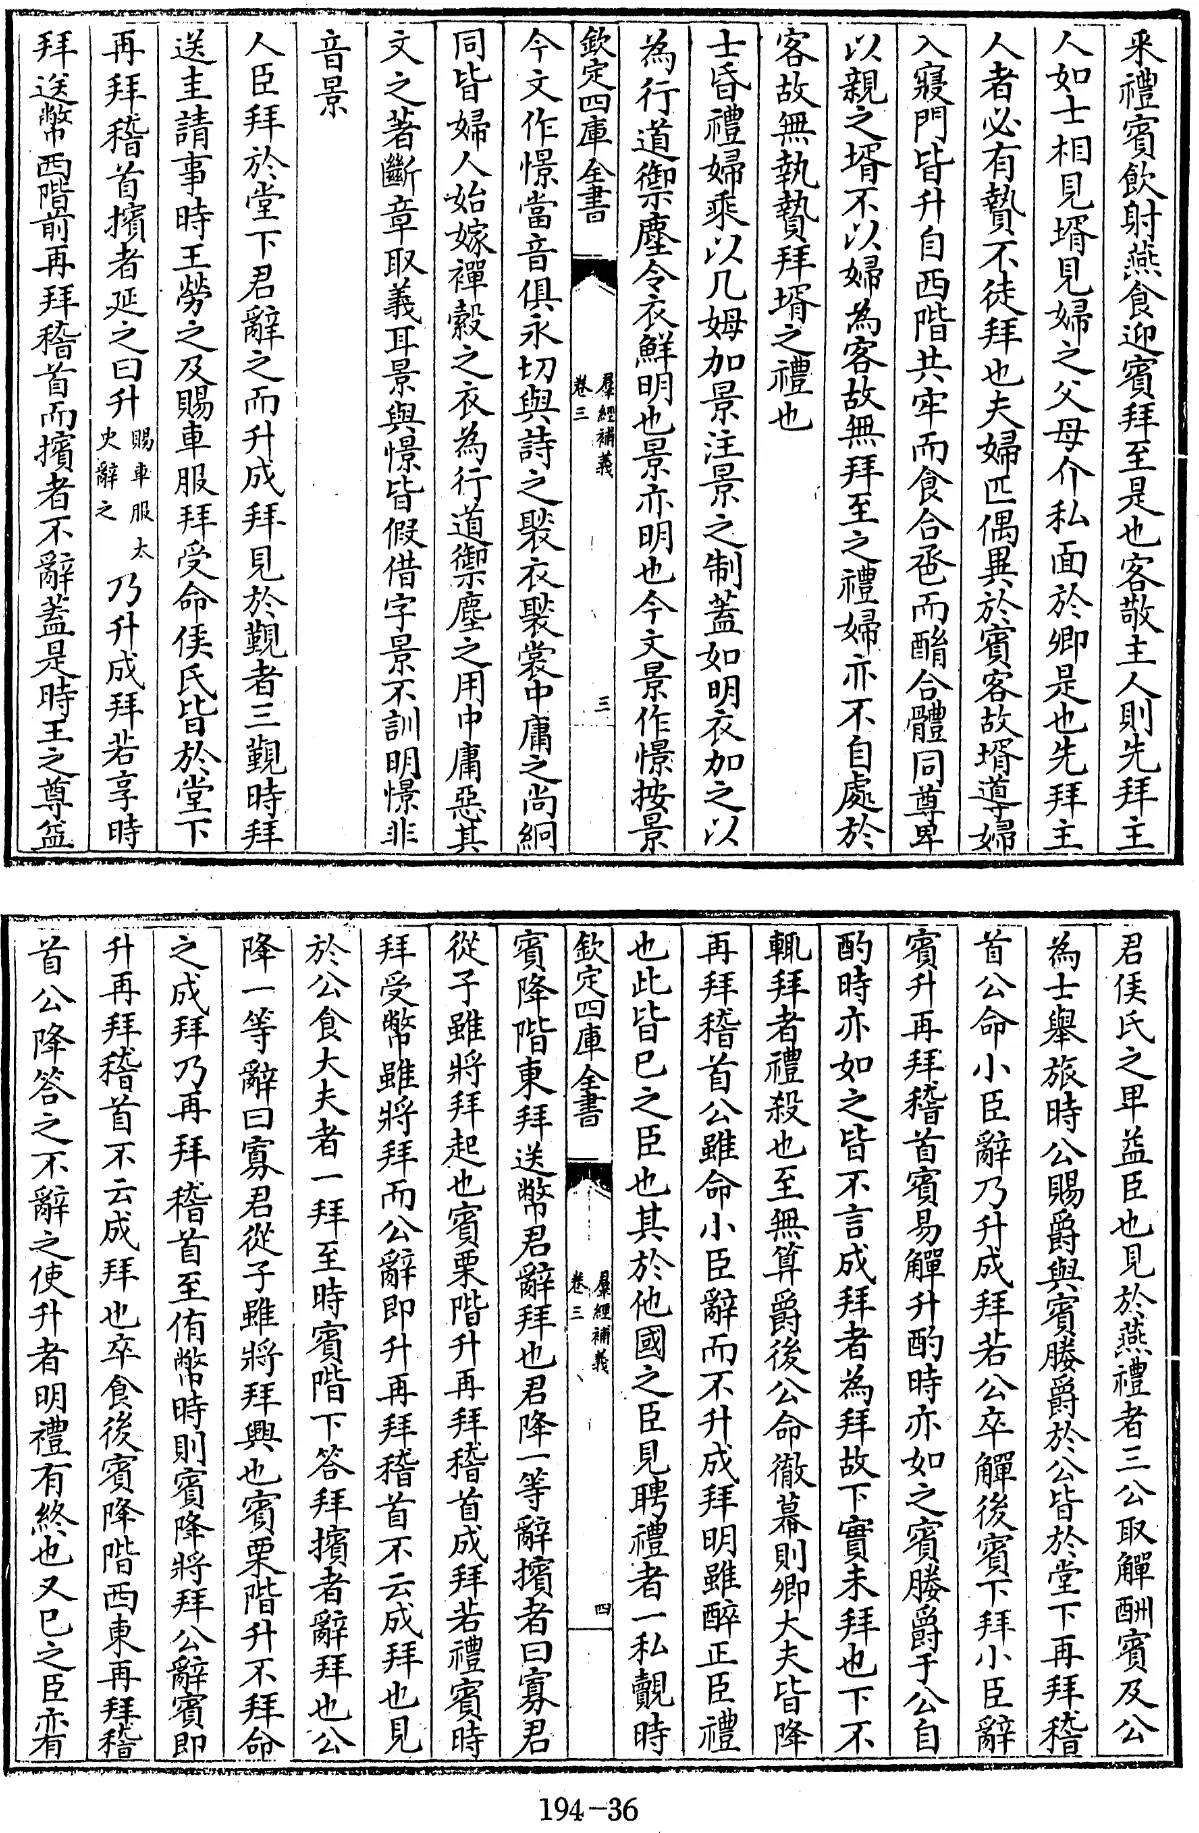 采禮賓飲射燕食迎賓拜至是也客敬主人則先拜主
人如士相見壻見婦之父母介私面於卿是也先拜主
人者必有贄不徒拜也夫婦匹偶異於賓客故壻導婦
入寢門皆升自西階共牢而食合巹而酳合體同尊卑
以親之壻不以婦為客故無拜至之禮婦亦不自處於
客故無執贄拜壻之禮也
士昏禮婦乘以几姆加景注景之制蓋如明衣加之以
為行道禦塵令衣鮮明也景亦明也今文景作憬按景
欽定四庫全書
羣經補義
卷三
三
今文作憬當音俱永切與詩之褧衣褧裳中庸之尚絅
同皆婦人始嫁襌縠之衣為行道禦塵之用中庸惡其
文之著斷章取義耳景與憬皆假借字景不訓明憬非
音景
人臣拜於堂下君辭之而升成拜見於覲者三覲時拜
送圭請事時王勞之及賜車服拜受命侯氏皆於堂下
再拜稽首擯者延之曰升賜車服太史辭之乃升成拜若享時
拜送幣西階前再拜稽首而擯者不辭蓋是時王之尊益
君侯氏之卑益臣也見於燕禮者三公取觶酬賓及公
為士舉旅時公賜爵與賓媵爵於公皆於堂下再拜稽
首公命小臣辭乃升成拜若公卒觶後賓下拜小臣辭
賓升再拜稽首賓易觶升酌時亦如之賓媵爵于公自
酌時亦如之皆不言成拜者為拜故下實未拜也下不
輒拜者禮殺也至無算爵後公命徹幕則卿大夫皆降
再拜稽首公雖命小臣辭而不升成拜明雖醉正臣禮
也此皆己之臣也其於他國之臣見聘禮者一私覿時
欽定四庫全書
羣經補義
卷三
四
賓降階東拜送幣君辭拜也君降一等辭擯者曰寡君
從子雖將拜起也賓栗階升再拜稽首成拜若禮賓時
拜受幣雖將拜而公辭即升再拜稽首不云成拜也見
於公食大夫者一拜至時賓階下答拜擯者辭拜也公
降一等辭曰寡君從子雖將拜興也賓栗階升不拜命
之成拜乃再拜稽首至侑幣時則賓降將拜公辭賓即
升再拜稽首不云成拜也卒食後賓降階西東再拜稽
首公降答之不辭之使升者明禮有終也又己之臣亦有
194-36